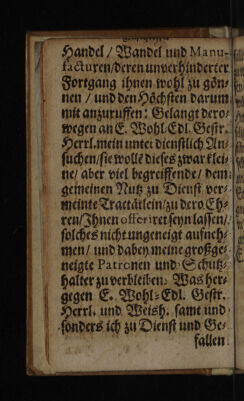 Handel / Wandel und Manu-
facturen / deren unverhinderter
Fortgang ihnen wohl zu gön-
nen / und den Höchsten darum
mit anzuruffen: Gelangt dero-
wegen an E. Wohl Edl. Gestr.
Herrl. mein unterdienstlich An-
suchen / sie wolle dieses zwar klei-
ne / aber viel begreiffende / dem
gemeinen Nutz zu Dienst ver-
meinte Tractätlein / zu dero Eh-
ren / Ihnen offeriret seyn lassen /
solches nicht ungeneigt aufneh-
men / und dabey meine großge-
neigte Patronen und Schutz-
halter zu verbleiben. Was her-
gegen E. Wohl-Edl. Gestr.
Herrl. und Weish. samt und
sonders ich zu Dienst und Ge-
fallen